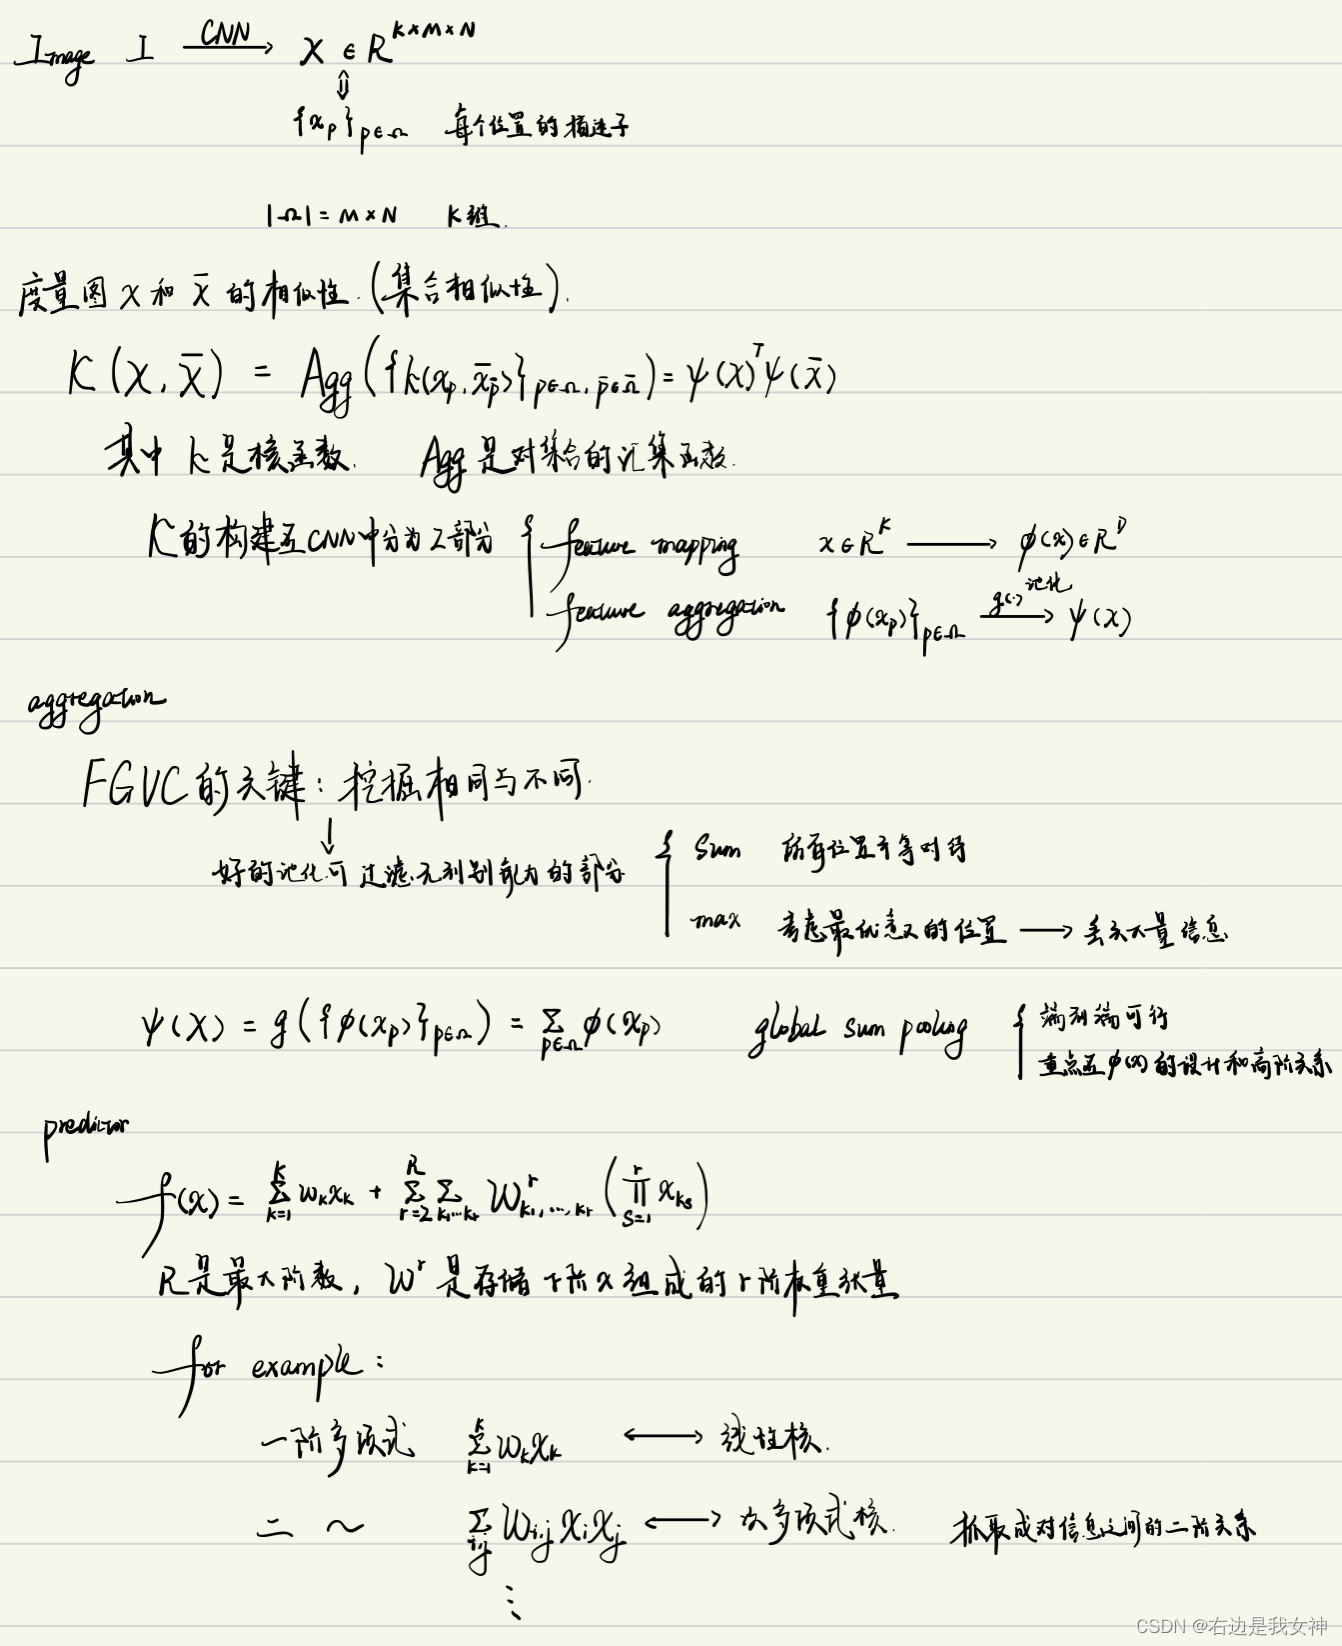 Image I —CNN→ X ∈ R^{K×M×N}
⇕
{x_p}_{p∈Ω} 每个位置的描述子
|Ω| = M×N K维.
度量图 X 和 X̄ 的相似性.(集合相似性).
K(X, X̄) = Agg({k(x_p, x̄_p̄)}_{p∈Ω, p̄∈Ω̄}) = ψ(X)^T ψ(X̄)
其中 k 是核函数. Agg 是对集合的汇集函数.
K的构建在CNN中分为2部分 { feature mapping x∈R^K → φ(x)∈R^D
feature aggregation {φ(x_p)}_{p∈Ω} —g(·) 池化→ ψ(X)
aggregation
FGVC的关键: 挖掘相同与不同.
↓
好的池化可过滤无判别能力的部分 { sum 所有位置平等对待
max 考虑最优意义的位置 → 丢失大量信息
ψ(X) = g({φ(x_p)}_{p∈Ω}) = Σ_{p∈Ω} φ(x_p) global sum pooling { 端到端可行
重点在φ(x)的设计和高阶关系
predictor
f(x) = Σ_{k=1}^{K} w_k x_k + Σ_{r=2}^{R} Σ_{k_1…k_r} W^r_{k_1,…,k_r} (Π_{s=1}^{r} x_{k_s})
R是最大阶数, W^r 是存储 r阶 x 组成的 r阶权重张量
for example :
一阶多项式 Σ_{k=1}^{K} w_k x_k ⟷ 线性核.
二 ~ Σ_{i,j} W_{i,j} x_i x_j ⟷ 多项式核. 抓取成对信息之间的二阶关系
⋮
CSDN @右边是我女神